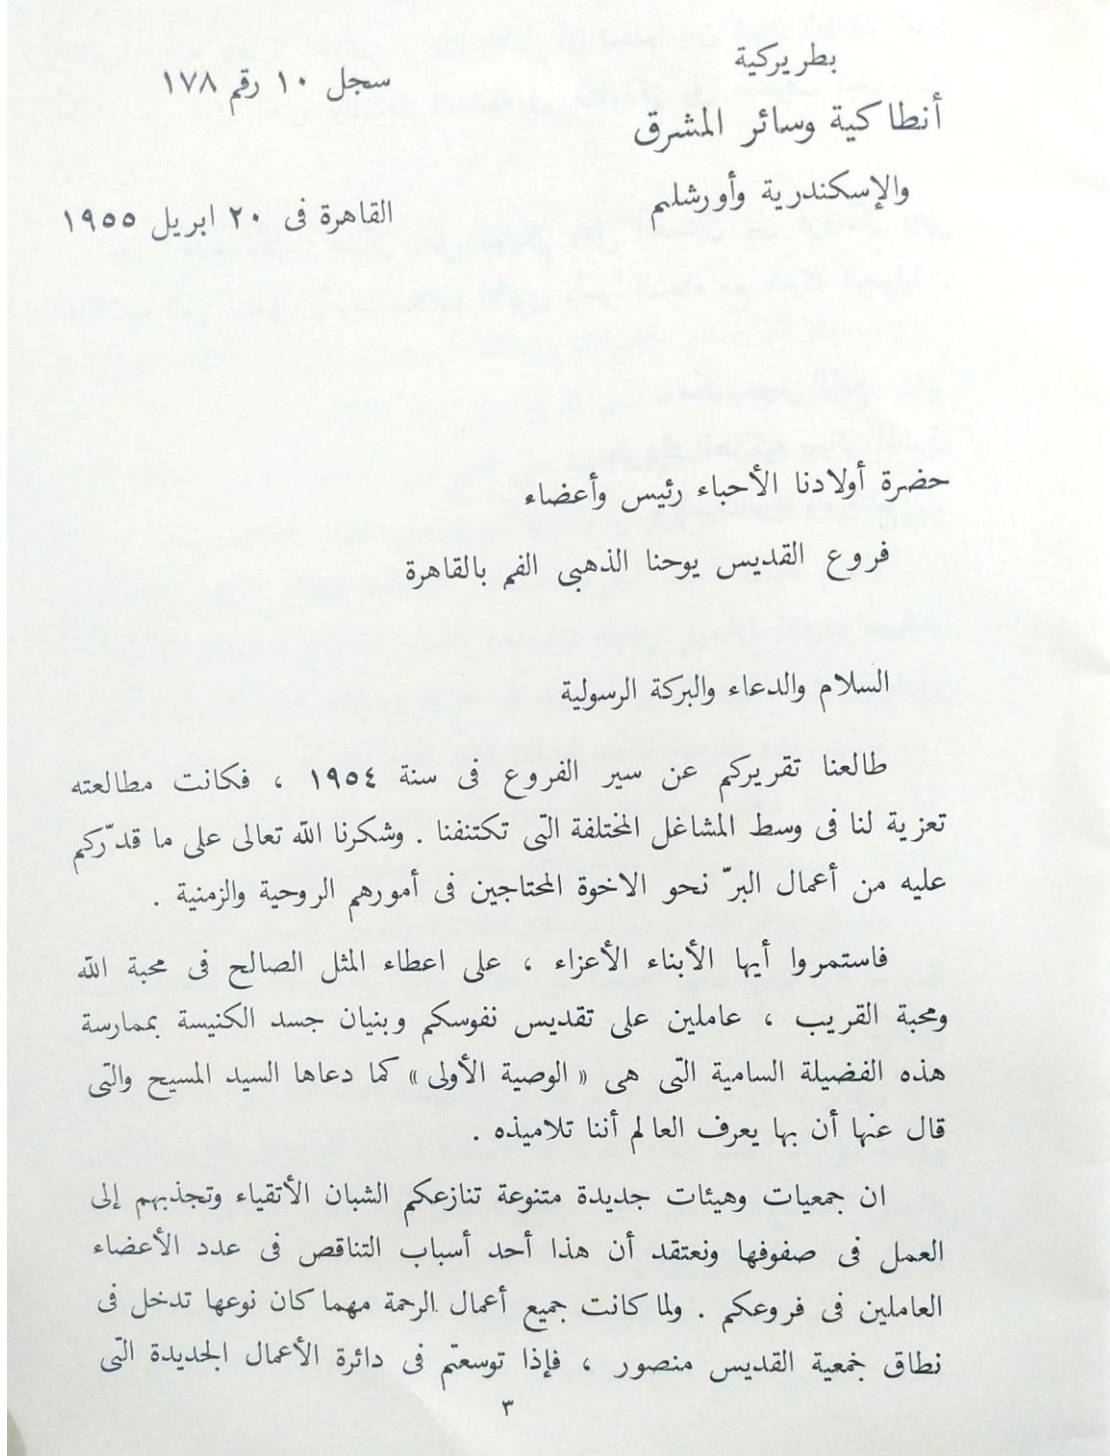 بطريركية
أنطاكية وسائر المشرق
والإسكندرية وأورشليم
سجل ١٠ رقم ١٧٨
القاهرة فى ٢٠ ابريل ١٩٥٥
حضرة أولادنا الأحباء رئيس وأعضاء
فروع القديس يوحنا الذهبى الفم بالقاهرة
السلام والدعاء والبركة الرسولية
طالعنا تقريركم عن سير الفروع فى سنة ١٩٥٤ ، فكانت مطالعته
تعزية لنا فى وسط المشاغل المختلفة التى تكتنفنا . وشكرنا الله تعالى على ما قدّركم
عليه من أعمال البرّ نحو الاخوة المحتاجين فى أمورهم الروحية والزمنية .
فاستمروا أيها الأبناء الأعزاء ، على اعطاء المثل الصالح فى محبة الله
ومحبة القريب ، عاملين على تقديس نفوسكم وبنيان جسد الكنيسة بممارسة
هذه الفضيلة السامية التى هى « الوصية الأولى » كما دعاها السيد المسيح والتى
قال عنها أن بها يعرف العالم أننا تلاميذه .
ان جمعيات وهيئات جديدة متنوعة تنازعكم الشبان الأتقياء وتجذبهم إلى
العمل فى صفوفها ونعتقد أن هذا أحد أسباب التناقص فى عدد الأعضاء
العاملين فى فروعكم . ولما كانت جميع أعمال الرحمة مهما كان نوعها تدخل فى
نطاق جمعية القديس منصور ، فإذا توسعتم فى دائرة الأعمال الجديدة التى
٣